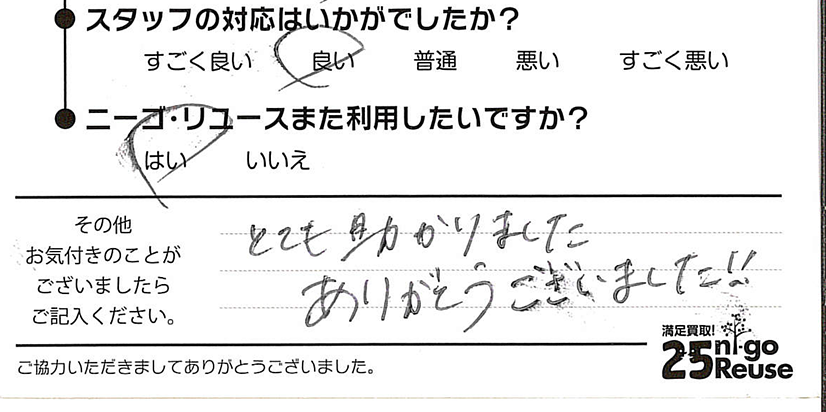 スタッフの対応はいかがでしたか？
すごく良い 良い 普通 悪い すごく悪い
ニーゴ・リユースまた利用したいですか？
はい いいえ
その他
お気付きのことが
ございましたら
ご記入ください。
とても助かりました
ありがとうございました!!
満足買取!
25 ni-go
Reuse
ご協力いただきましてありがとうございました。